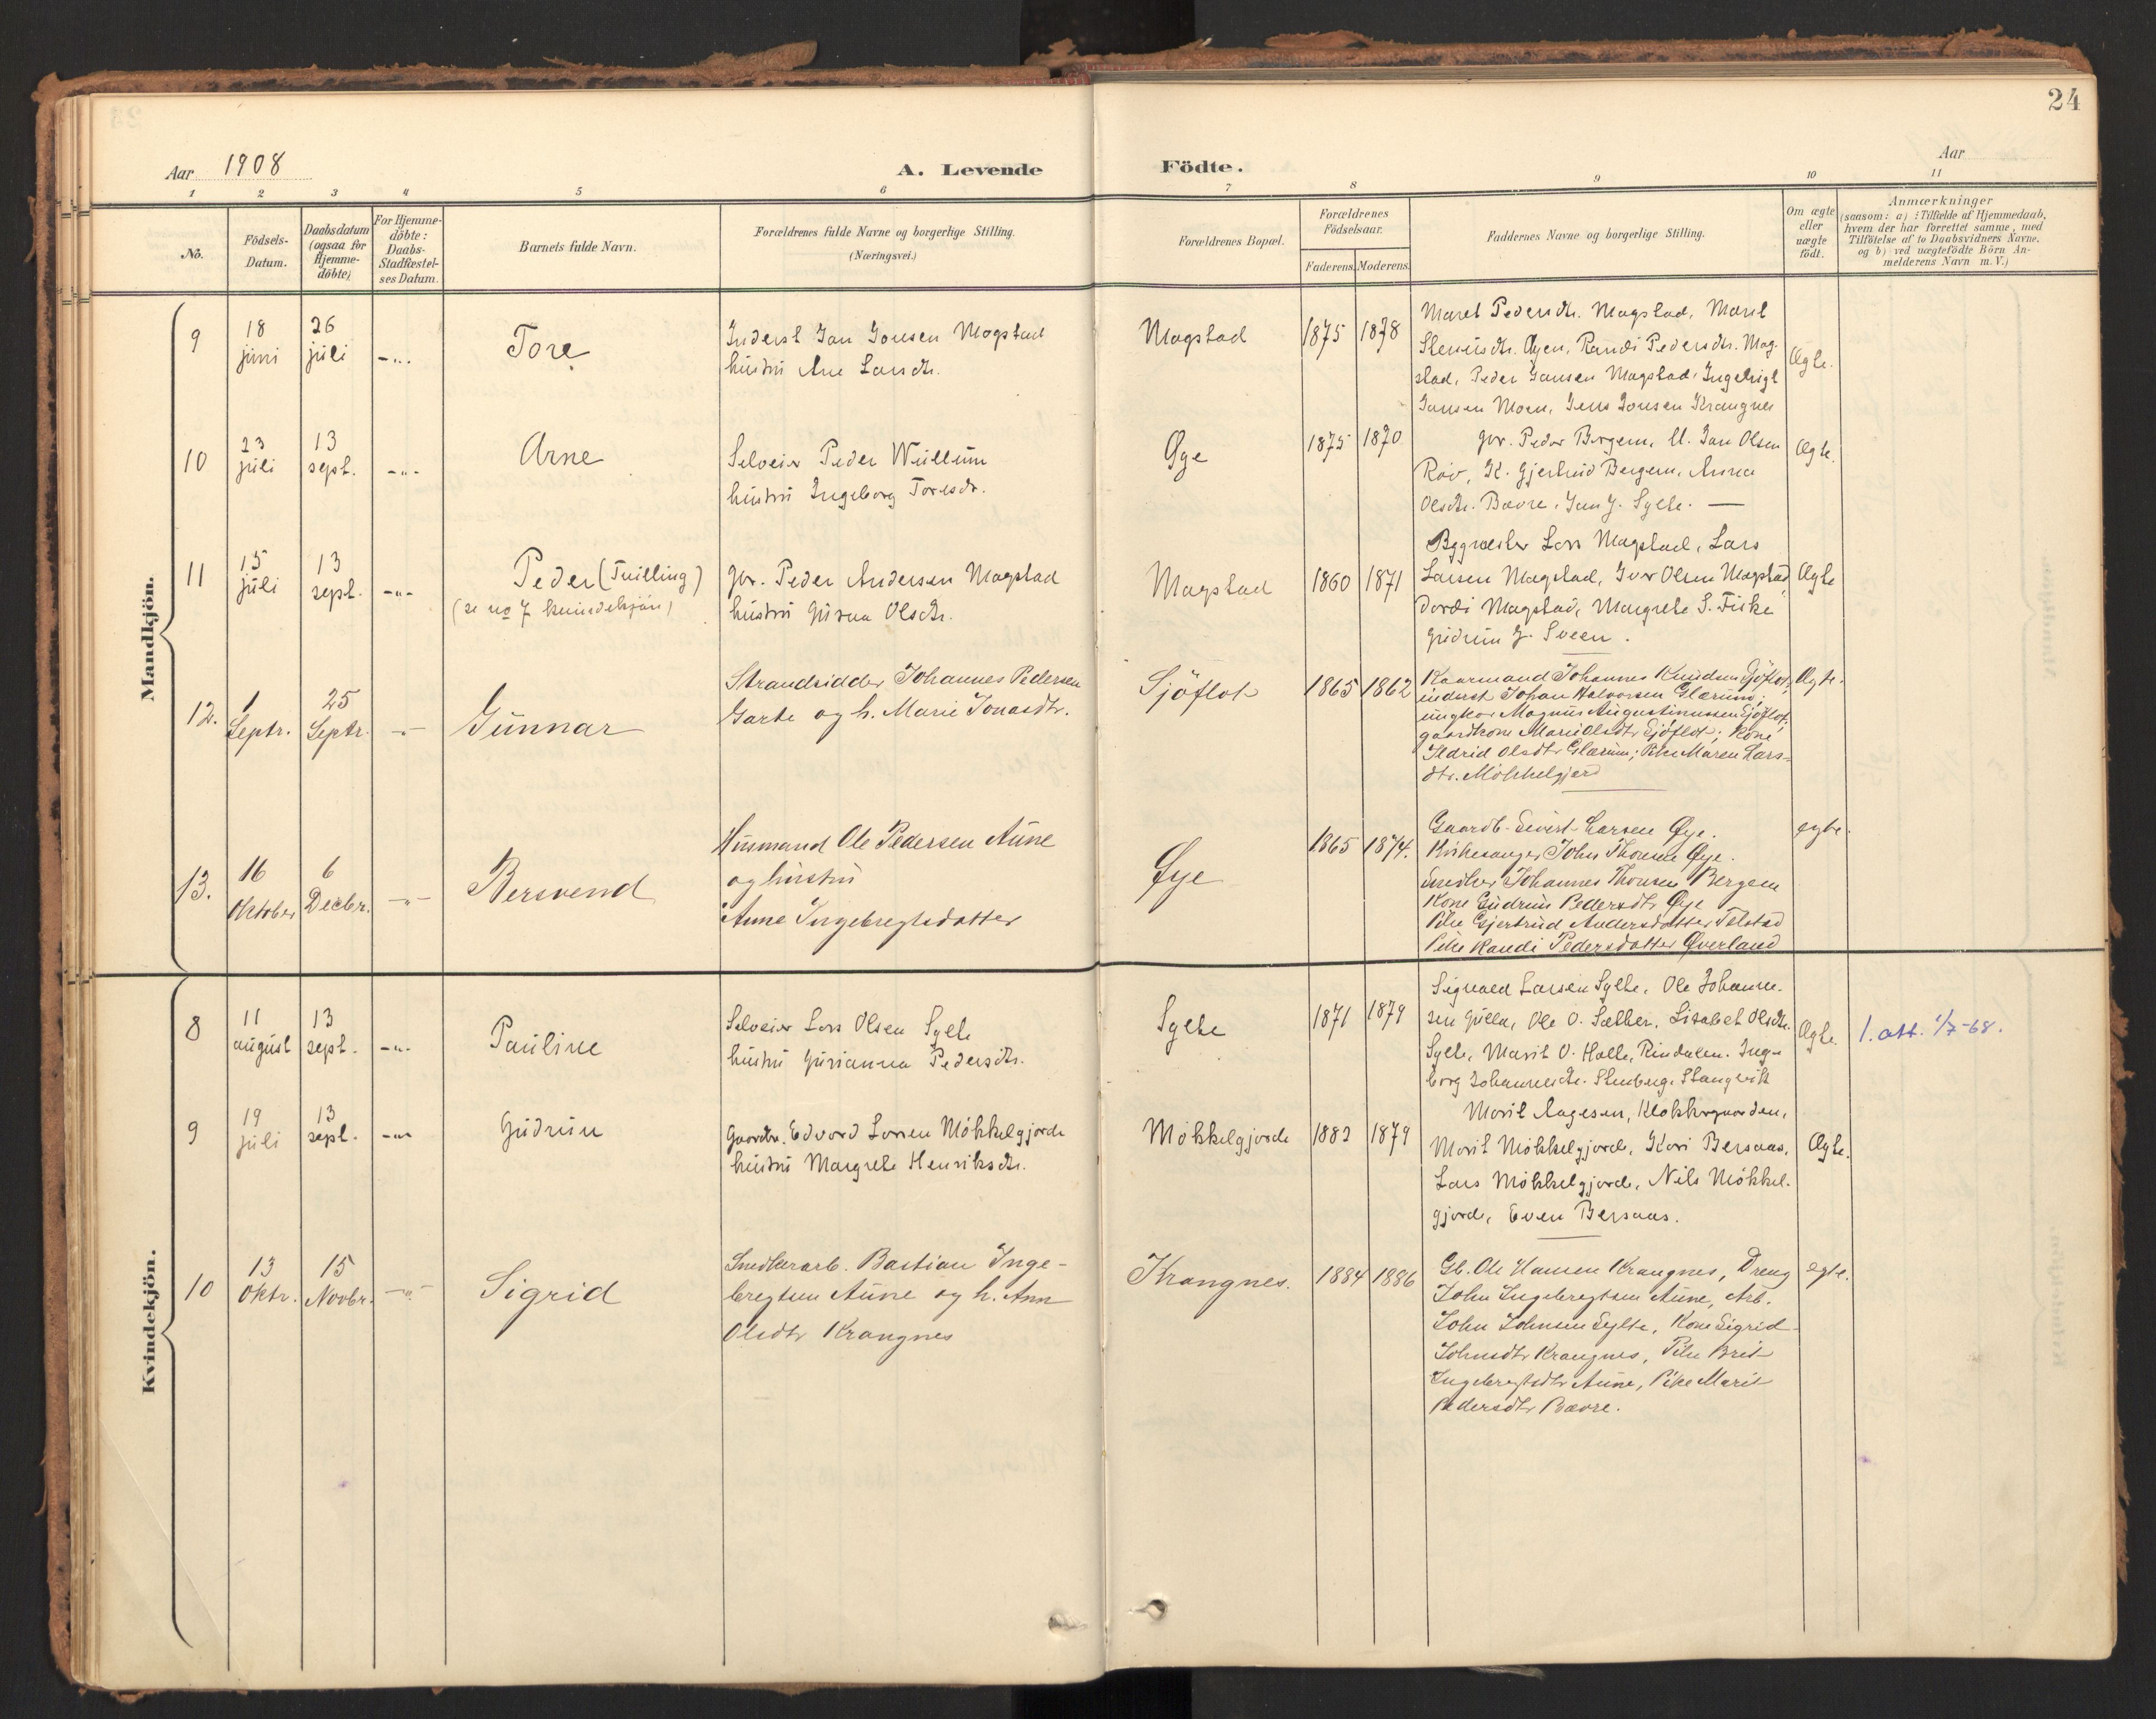 24
Aar 1908
A. Levende
Födte.
Aar
1 2 3 4 5 6 7 8 9 10 11
No.
Födsels-
Datum.
Daabsdatum
(ogsaa for
Hjemme-
döbte)
For Hjemme-
döbte:
Daabs-
Stadfæstel-
ses Datum.
Barnets fulde Navn.
Forældrenes fulde Navne og borgerlige Stilling.
(Næringsvei.)
Forældrenes Bopæl.
Forældrenes
Födselsaar.
Faderens. Moderens.
Faddernes Navne og borgerlige Stilling.
Om ægte
eller
uægte
födt.
Anmærkninger
(saasom: a) : Tilfælde af Hjemmedaab,
hvem der har forrettet samme, med
Tilföielse af to Daabsvidners Navne,
og b) ved uægtefödte Börn An-
melderens Navn m. V.)
Mandkjön.
9
18
juni
26
juli
-„-
Tore
Inderst Jon Jonsen Magstad
hustru Ane Larsdtr.
Magstad
1875 1878
Marit Pedersdtr. Magstad, Marit
Steniisdtr. Øyen, Randi Pedersdtr. Mag-
stad, Peder Jonsen Magstad, Ingebrigt
Jonsen Moen, Jens Jonsen Krangnes
Ægte.
10
23
juli
13
sept.
-„-
Arne
Selveier Peder Wullum
hustru Ingeborg Toresdr.
Øye
1875 1870
gbr. Peder Bergem, U. Jon Olsen
Röv, K. Gjertrud Bergem, Anna
Olsdtr. Bævre, Jon J. Sylte. —
Ægte.
11
15
juli
13
sept.
-„-
Peder (Tvilling)
(se no 7 kvindekjön)
gbr. Peder Andersen Magstad
hustru Guroa Olsdtr.
Magstad
1860 1871
Lars Magstad, Lars
Larsen Magstad, Iver Olsen Magstad,
Dordi Magstad, Margrete S. Fiske
Gudrun J. Sveen.
Ægte
12.
1
Septr.
25
Septr.
-„-
Gunnar
Strandsidder Johannes Pedersen
Garte og h. Marie Jonasdtr.
Sjöflot
1865 1862
Kaarmand Johannes Knudsen Sjöflot;
inderst Johan Halvorsen Glærum;
ungkar Magnus Augustinussen Sjöflot;
gaardkone Marie Olsdtr Sjöflot; Kone
Sedrid Olsdtr Glærum; Pike Maren Lars-
dtr. Mökkelgjerd
Ægte.
13.
16
Oktober
6
Decbr.
-„-
Bersvend
Husmand Ole Pedersen Aune
og hustru
Anne Ingebregtsdatter
Øye
1865 1874.
Gaardb. Sivert Larsen Øye.
Kirkesanger John Thonsen Øye.
Snedker Johannes Thonsen Bergem
Kone Gudrun Pedersdtr Øye
Pike Gjertrud Andersdatter Telstad
Pike Randi Pedersdatter Øverland
egte.
Kvindekjön.
8
11
august
13
sept.
-„-
Pauline
Selveier Lars Olsen Sylte
hustru Gurianna Pedersdtr.
Sylte
1871 1879
Sigvald Larsen Sylte, Ole Johanne-
sen Gulla, Ole O. Sæther, Lisabet Olsdtr.
Sylte, Marit O. Holte, Rindalen. Inge-
borg Johannesdtr. Stenberg, Stangvik
Ægte.
1. att. 1/7-68.
9
19
juli
13
sept.
-„-
Gudrun
Gaardbr. Edvard Larsen Mökkelgjerde
hustru Margrete Henriksdtr.
Mökkelgjerde
1882 1879
Marit Aagesen, Klokkergaarden,
Marit Mökkelgjerde, Kari Bersaas,
Lars Mökkelgjerde, Nils Mökkel-
gjerde, Even Bersaas.
Ægte.
10
13
Oktr.
15
Novbr.
-„-
Sigrid
Snedkerarb. Bastian Inge-
bregtsen Aune og h. Ann
Olsdtr Krangnes
Krangnes.
1884 1886
Gb. Ole Hansen Krangnes, Dreng
John Ingebregtsen Aune, Arb.
John Johnsen Sylte, Kone Sigrid
Johnsdtr Krangnes, Pike Brit
Ingebregtsdtr Aune, Pike Marit
Pedersdtr Bævre.
egte.